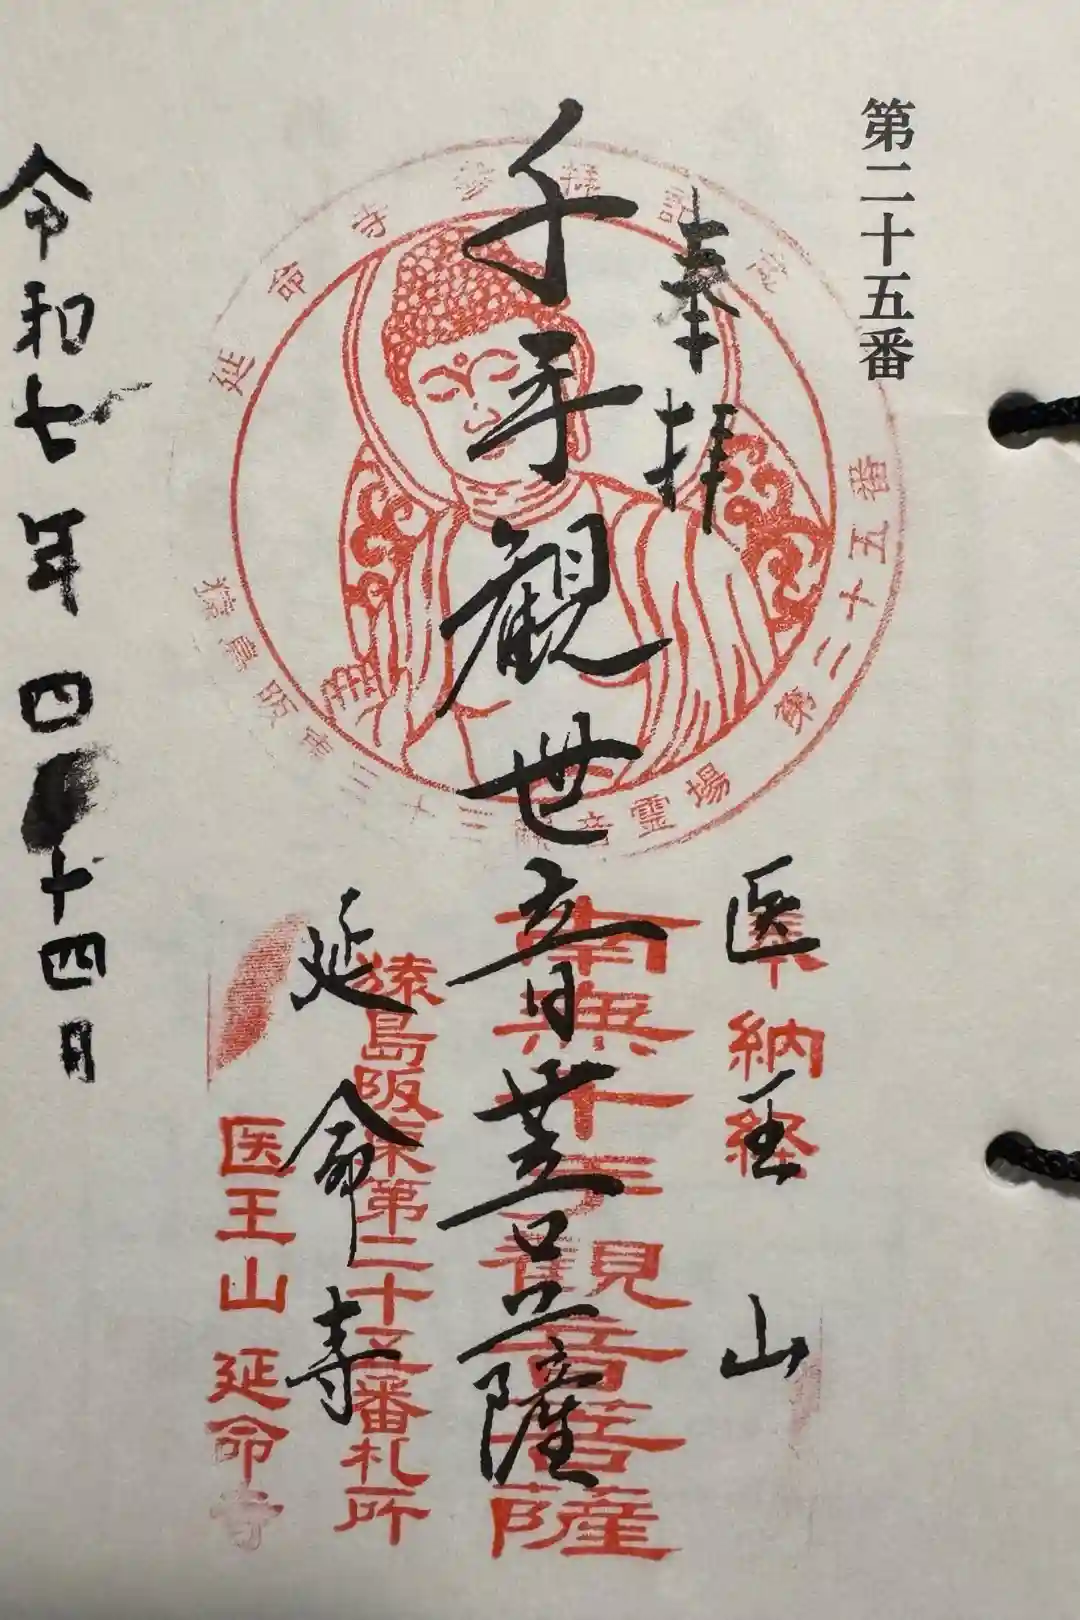 第二十五番
奉拝
医王山
奉納経
千手観世音菩薩
南無千手観音菩薩
延命寺
猿島阪東第二十五番札所
医王山 延命寺
延命寺参拝記念
第二十五番
猿島阪東三十三観音霊場
令和七年四月十四日